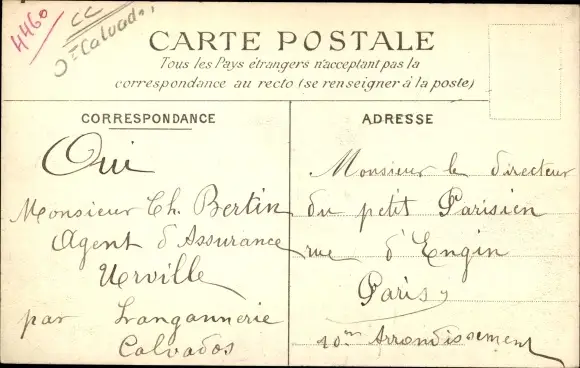 4460
CC
Calvados
CARTE POSTALE
Tous les Pays étrangers n'acceptant pas la
correspondance au recto (se renseigner à la poste)
CORRESPONDANCE
Oui
Monsieur Ch. Bertin
Agent d'Assurance
Urville
par Langannerie
Calvados
ADRESSE
Monsieur le directeur
du petit Parisien
rue d'Engin
Paris
10me Arrondissement